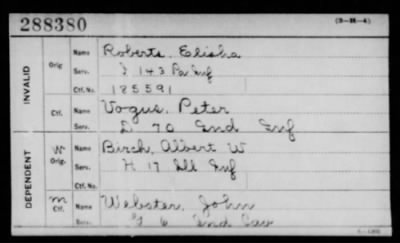 288380 (3-H-4)
INVALID
Orig Name Roberts, Elisha
Serv. I 143 Pa Inf
Ctf. No. 185591
Ctf. Name Vogus, Peter
Serv. D 70 Ind Inf
DEPENDENT
W Orig. Name Birch, Albert W
Serv. H 17 Ill Inf
Ctf. No.
M Ctf. Name Webster, John
Serv. G 6 Ind Cav